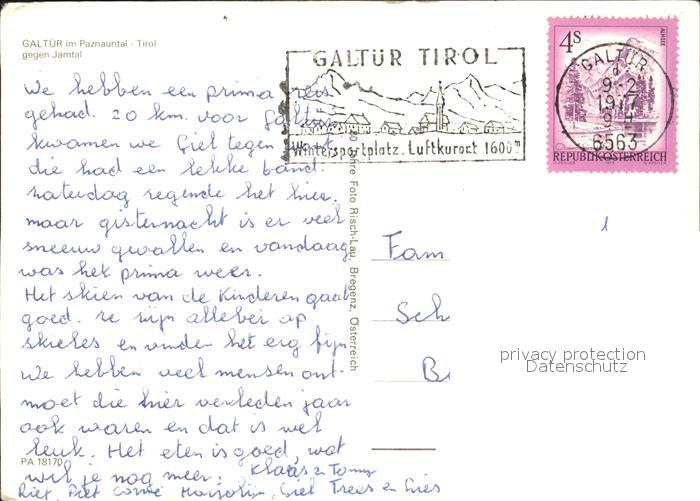 GALTÜR im Paznauntal - Tirol
gegen Jamtal
We hebben een prima reis
gehad. 20 km. voor Galtür
kwamen we Giel tegen
die had een lekke band.
zaterdag regende het hier.
maar gisternacht is er veel
sneeuw gevallen en vandaag
was het prima weer.
Het skien van de kinderen gaat
goed. ze zijn allebei op
skieles en vinden het erg fijn
We hebben veel mensen ont-
moet die hier verleden jaar
ook waren en dat is wel
leuk. Het eten is goed, wat
wil je nog meer. Klaas en Tonny
Riet, Piet Corrie Marjolijn, Giel Trees en Gies
PA 18170
GALTÜR TIROL
Wintersportplatz. Luftkurort 1600 m
4s
ALMSEE
GALTÜR
9.-2
1977
6563
REPUBLIK ÖSTERREICH
Jahre Foto Risch-Lau, Bregenz, Österreich
1
Fam
Sch
B
privacy protection
Datenschutz